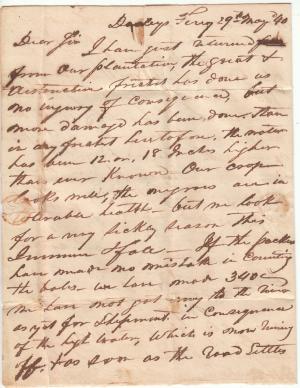 Dooleys Ferry 29th May '40
Dear Sir
I have just returned
from our plantation, the great &
destructive freshet has done us
no injury of consequence, but
more damage has been done, than
in any freshet heretofore, the water
has been 12 or 18 Inches higher
than ever known. Our crop
looks well, the negroes are in
tolerable health – but we look
for a very sickly season this
Summer & fall. If the packers
have made no mistake in counting
the bales we have made 340 –
we have not got any to the river
as yet for shipment, in consequence
of the high water, which is now running
off. & as soon as the road settles